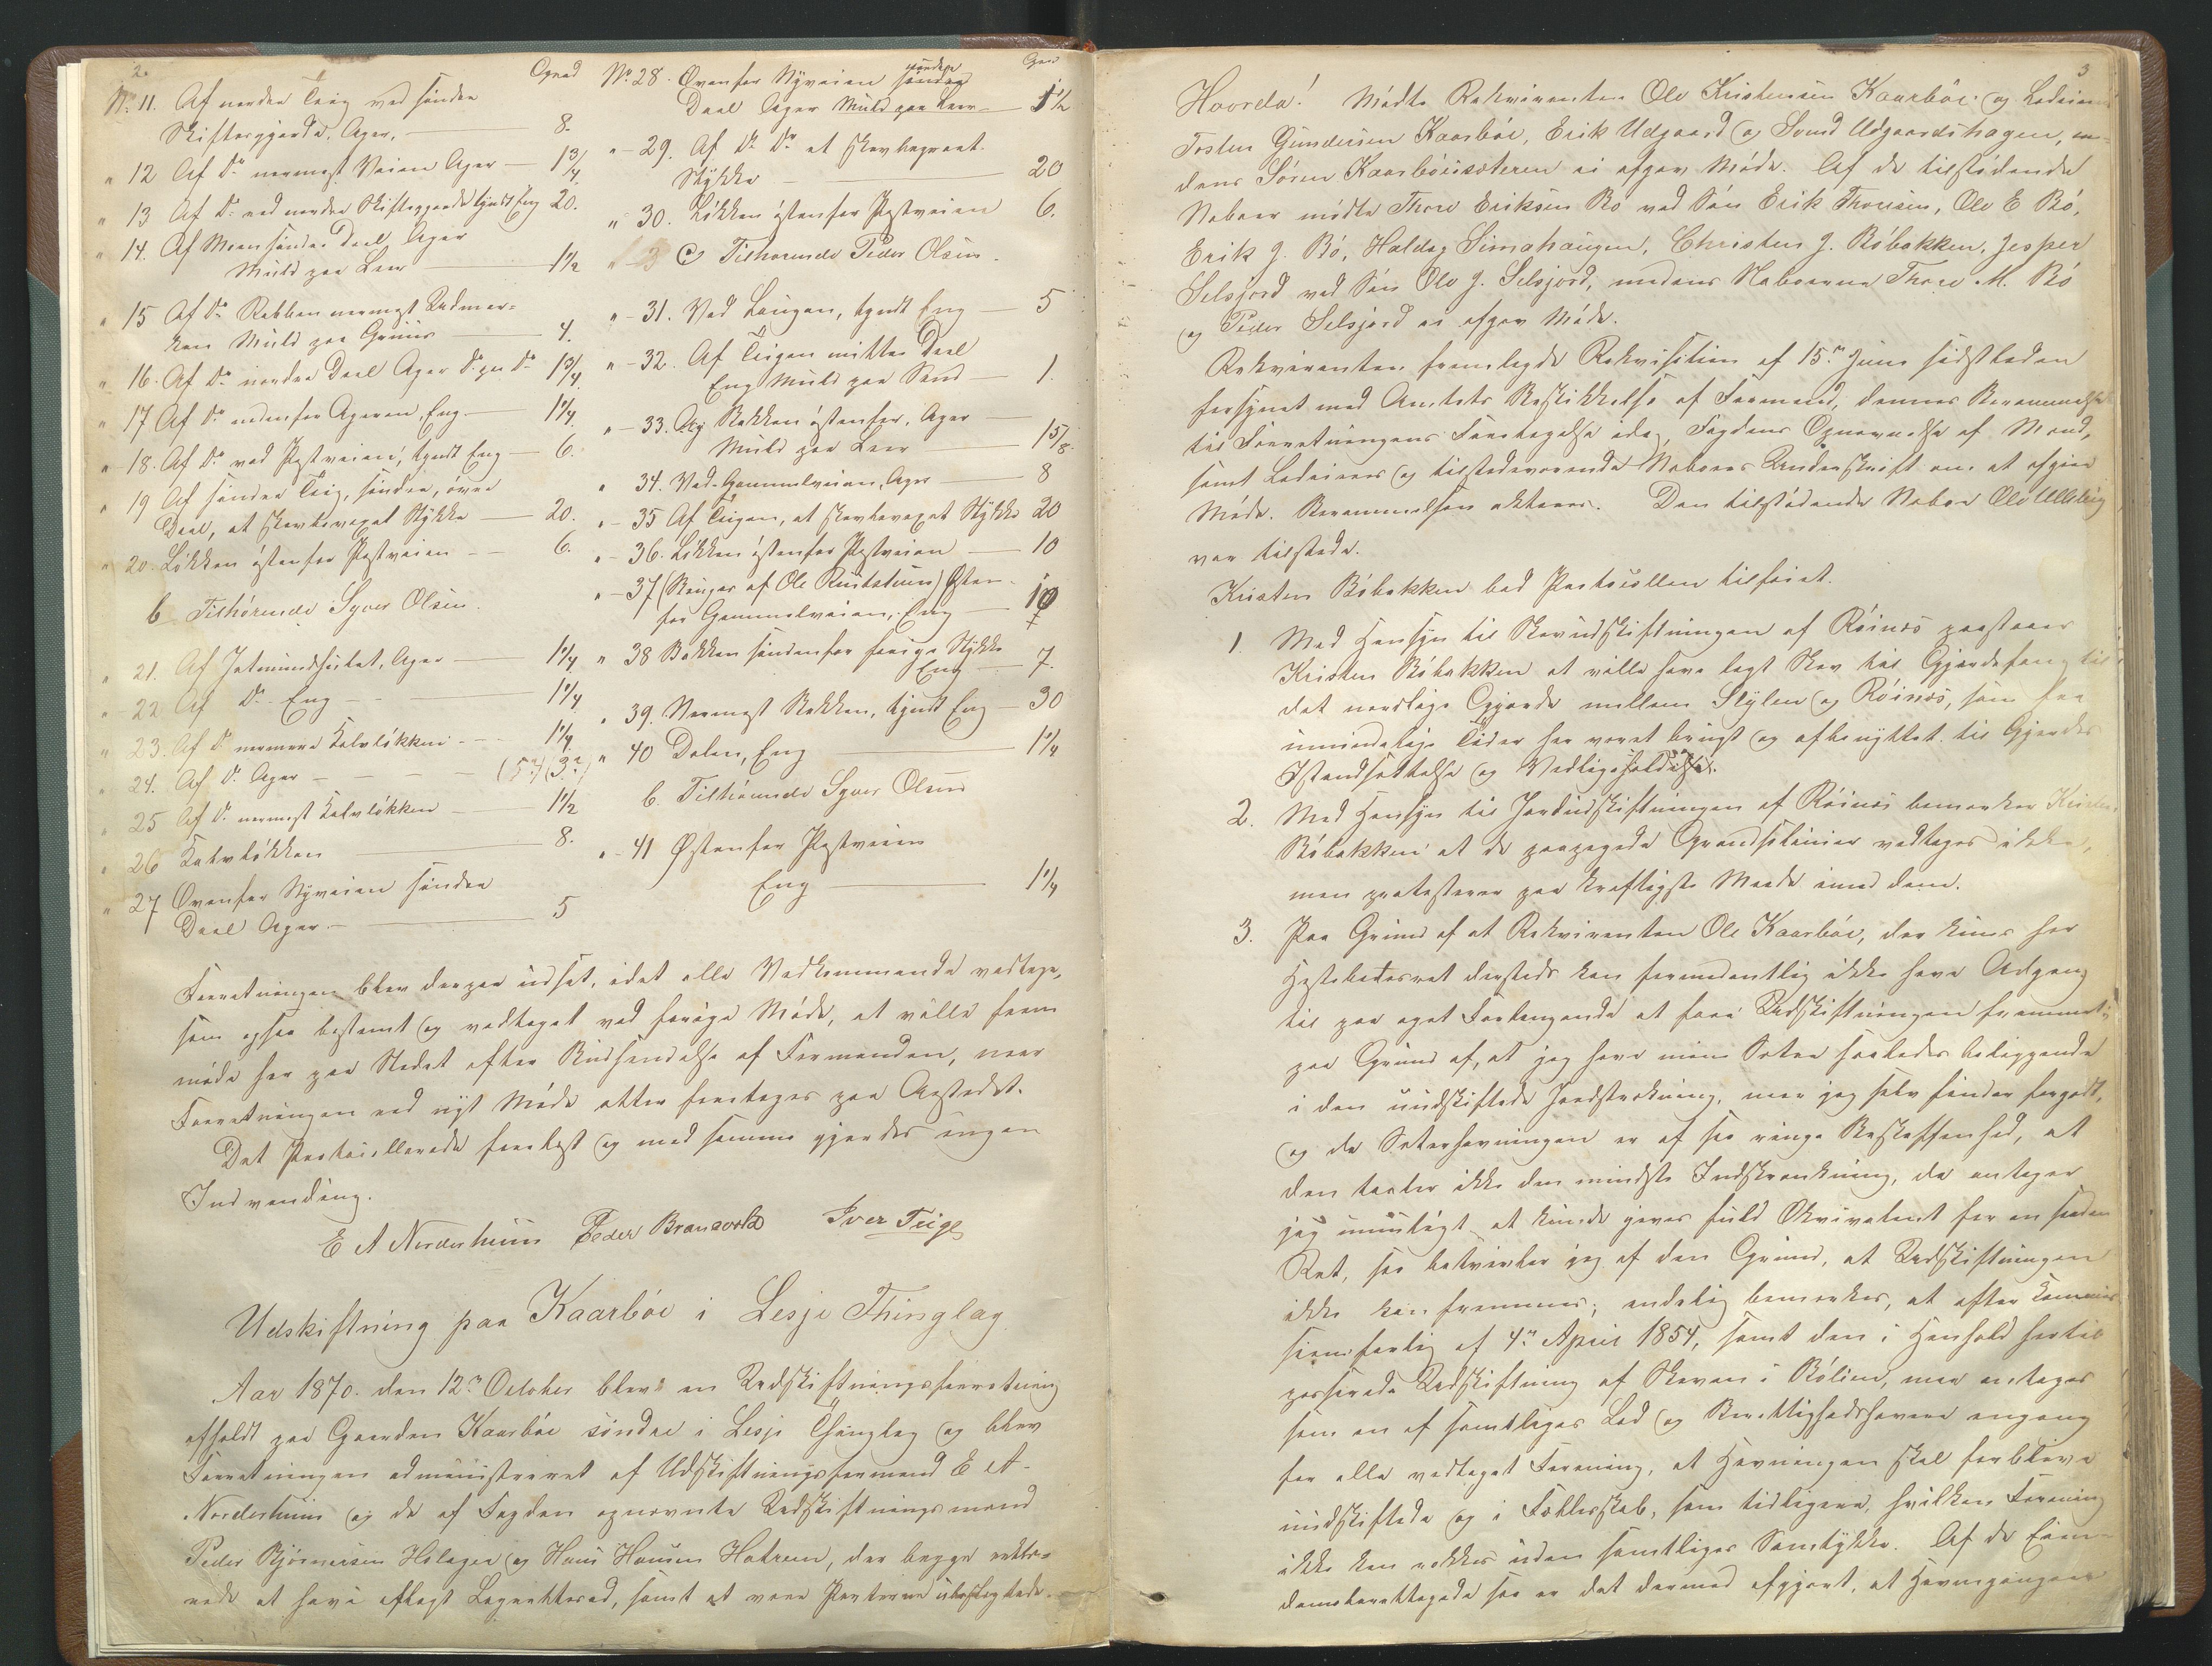 2.
Opaad
No. 11. Af nordre Teig ved søndre
Skiftesgjerde, Ager, — 8.
" 12 Af Do nermest Veien Ager — 1 3/4
" 13 Af Do ved nordre Skiftesgjerde tyndt Eng 20.
" 14. Af Moen søndre Deel, Ager
Muld paa Leer — 1 1/2
" 15 Af Do Rabben nermest Udmar-
ken Muld paa Gruus — 4.
" 16. Af Do nordre Deel Ager Do paa Do 1 3/4
" 17 Af Do nedenfor Ageren, Eng. — 1 1/4
" 18. Af Do ved Postveien, tyndt Eng — 6.
" 19 Af søndre Teig, søndre, øvre
Deel, et skovbevoxet Stykke — 20.
" 20. Løkken østenfor Postveien — 6.
b Tilhørende Syver Olsen.
" 21. Af Jetmundsjilet, Ager — 1 1/4
" 22 Af Do Eng — 1 1/4
" 23. Af Do nermere Kalvløkken — 1 1/4
" 24. Af Do Ager — (5?) (3?)
" 25 Af Do nermest Kalvløkken — 1 1/2
" 26 Kalvløkken — 8.
" 27 Ovenfor Nyveien søndre
Deel Ager. — 5
No. 28. Ovenfor Nyveien søndre nordre
Deel Ager Muld paa Leer — 1 1/2
" 29. Af Do Do et skovbegroet
Stykke — 20
" 30. Løkken østenfor Postveien 6.
C Tilhørende Peder Olsen.
" 31. Ved Laugen, tyndt Eng — 5
" 32. Af Teigen midtre Deel
Eng Muld paa Sand — 1.
" 33. Bakken østenfor, Ager
Muld paa Leer — 1 5/8.
" 34. Ved Gammelveien, Ager — 8
" 35 Af Teigen, et skovbevoxet Stykke 20
" 36. Løkken østenfor Postveien — 10
" 37 (Bruges af Ole) Østen-
for Gammelveien, Eng — 10
" 38 Bakken søndenfor forrige Stykke
Eng — 7.
" 39. Nermest Bakken, tyndt Eng — 30
" 40 Dalen, Eng — 1 1/4
b. Tilhørende Syver Olsen
" 41 Østenfor Postveien
Eng — 1 1/4
Forretningen blev derpaa udsat, idet alle Vedkommende vedtoge,
som ogsaa bestemt og vedtaget ved forrige Møde, at ville frem
møde her paa Stedet efter Budsendelse af Formanden, naar
Forretningen ved nyt Møde atter foretages paa Aastedet.
Det Protocollerede forelæst og mod samme gjordes ingen
Indvending.
E A Norderhuus Peder Brændvold Iver Teige
Udskiftning paa Kaarbøe i Lesje Thinglag
Aar 1870. den 12te October blev en Udskiftningsforretning
afholdt paa Gaarden Kaarbøe søndre i Lesje Thinglag og blev
Forretningen administreret af Udskiftningsformand E A
Norderhuus og de af Fogden opnevnte Udskiftningsmænd
Peder Bjørnersen Holager og Hans Hansen Hatrem, der begge erklæ-
rede at have aflagt Lagrettesed, samt at være Parterne ubeslegtede.
3
Hvorda! Mødte Rekvirenten Ole Kristensen Kaarbøe og Lodeierne
Tosten Gundersen Kaarbøe, Erik Udgaard og Svend Udgaardshagen, me-
dens Søren Kaarbøesæteren ei afgav Møde. Af de tilstødende
Naboer mødte Thore Eriksen Bø ved Søn Erik Thoresen, Ole E Bø,
Erik J. Bø, Haldog Simahaugen, Christen J. Bøbakken, Jesper
Selsjord ved Søn Ole J. Selsjord, medens Naboerne Thore M. Bø
og Peder Selsjord ei afgav Møde.
Rekvirenten fremlagde Rekvisition af 15de Juni sidstleden
forsynet med Amtets Beskikkelse af Formand, dennes Berammelse
til Forretningens Foretagelse idag, Fogdens Opnævnelse af Mænd,
samt Lodeieres og tilstedeværende Naboers Underskrift om at afgive
Møde. Berammelsen akteres. Den tilstødende Nabo Ole Ulleteig
var tilstede.
Kristen Bøbakken bad Protocollen tilføiet.
1. Med Hensyn til Skovudskiftningen af Røines paastaaer
Kristen Bøbakken at ville have lagt Skov til Gjerdefang til
det nordlige Gjerde mellem Slylen og Røines, som fra
umindelige Tider har været brugt og afbenyttet til Gjerdes
Istandsættelse og Vedligeholdelse.
2. Med Hensyn til Jordudskiftningen af Røines bemærker Kristen
Bøbakken at de paapegede Grændselinier vedtages ikke,
men protesterer paa kraftigste Maade imod dem.
3. Paa Grund af at Rekvirenten Ole Kaarbøe, der kuns har
Høstebeitesret dersteds kan formodentlig ikke have Adgang
til paa eget Forlangende at faae Udskiftningen fremmet;
paa Grund af, at jeg har min Sæter saaledes beliggende
i den uudskiftede Jordstrækning, naar jeg selv finder forgodt,
og da Sæterhavningen er af saa ringe Beskaffenhed, at
den taaler ikke den mindste Indskrænkning, da antager
jeg umuligt at kunde gives fuld Ækvivalent for en saadan
Ret, saa bekræfter jeg af den Grund, at Udskiftningen
ikke kan fremmes; endelig bemærkes, at efter Kommis-
sionsforlig af 4de April 1854, samt den i Henhold hertil
passerede Udskiftning af Skoven i Bølien, maa antages
som en af samtlige Lod og Berettighedshavere engang
for alle vedtaget Forening, at Havningen skal forblive
uudskiftede og i Fællesskab, som tidligere, hvilken Forening
ikke kan rokkes uden samtliges Samtykke. Af de Eien-
domsberettigede saa er det dermed afgjort, at Havnegangene